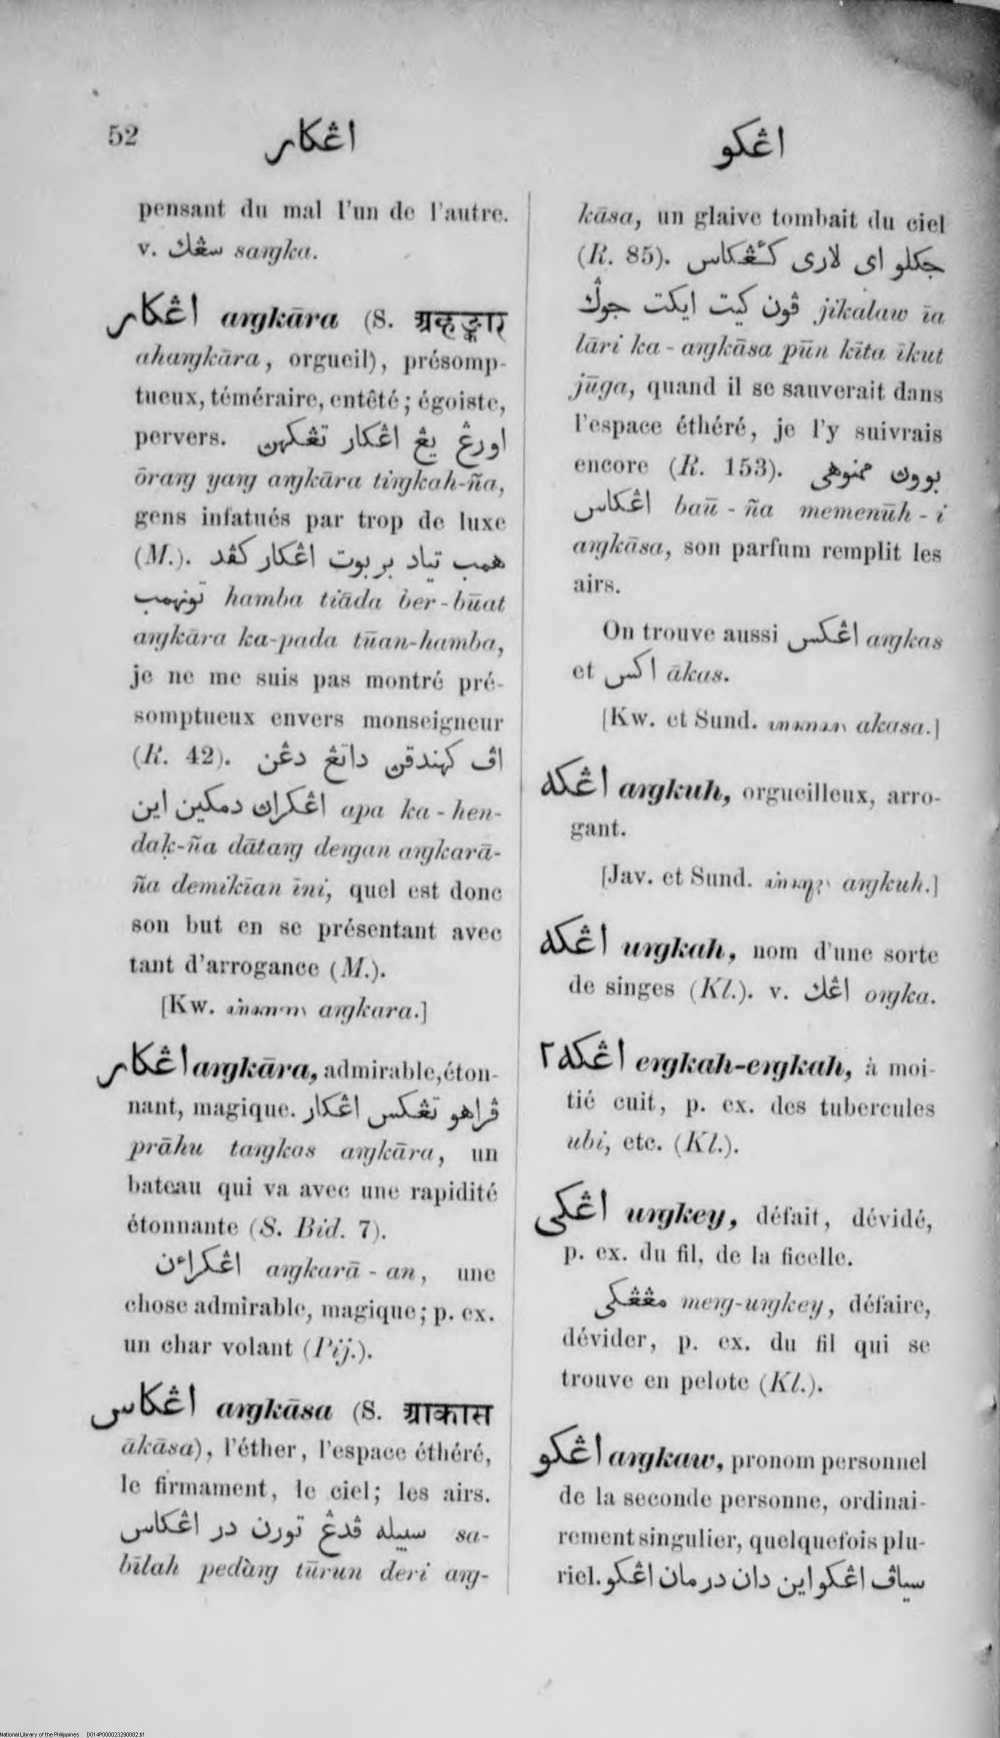 52
اڠكار
اڠكو
pensant du mal l'un de l'autre.
v. سڠك saŋka.
اڠكار aŋkāra (S. अहङ्कार
ahaŋkāra, orgueil), présomp-
tueux, téméraire, entêté; égoiste,
pervers. اورڠ يڠ اڠكار تڠكهن
ōraŋ yaŋ aŋkāra tiŋkah-ña,
gens infatués par trop de luxe
(M.). همب تياد بربوت اڠكار كڤد
تونهمب hamba tiāda ber-būat
aŋkāra ka-pada tūan-hamba,
je ne me suis pas montré pré-
somptueux envers monseigneur
(R. 42). اڤ كهندقن داتڠ دڠن
اڠكران دمكين اين apa ka-hen-
daḳ-ña dātaŋ deŋan aŋkarā-
ña demikīan īni, quel est donc
son but en se présentant avec
tant d'arrogance (M.).
[Kw. aŋkara.]
اڠكار aŋkāra, admirable, éton-
nant, magique. ڤراهو تڠكس اڠكار
prāhu taŋkas aŋkāra, un
bateau qui va avec une rapidité
étonnante (S. Bid. 7).
اڠكراءن aŋkarā-an, une
chose admirable, magique; p. ex.
un char volant (Pij.).
اڠكاس aŋkāsa (S. आकास
ākāsa), l'éther, l'espace éthéré,
le firmament, le ciel; les airs.
سبيله ڤدڠ تورن در اڠكاس sa-
bīlah pedàŋ tūrun deri aŋ-
kāsa, un glaive tombait du ciel
(R. 85). جكلو اي لاري كٔاڠكاس
ڤون كيت ايكت جوݢ jikalaw īa
lāri ka-aŋkāsa pūn kīta īkut
jūga, quand il se sauverait dans
l'espace éthéré, je l'y suivrais
encore (R. 153). بوون ممنوهي
اڠكاس baū-ña memenūh-i
aŋkāsa, son parfum remplit les
airs.
On trouve aussi اڠكس aŋkas
et اكس ākas.
[Kw. et Sund. akasa.]
اڠكه aŋkuh, orgueilleux, arro-
gant.
[Jav. et Sund. aŋkuh.]
اڠكه uŋkah, nom d'une sorte
de singes (Kl.). v. اڠك oŋka.
اڠكه٢ eŋkah-eŋkah, à moi-
tié cuit, p. ex. des tubercules
ubi, etc. (Kl.).
اڠكي uŋkey, défait, dévidé,
p. ex. du fil, de la ficelle.
مڠڠكي meŋ-uŋkey, défaire,
dévider, p. ex. du fil qui se
trouve en pelote (Kl.).
اڠكو aŋkaw, pronom personnel
de la seconde personne, ordinai-
rement singulier, quelquefois plu-
riel. سياڤ اڠكو اين دان درمان اڠكو
National Library of the Philippines